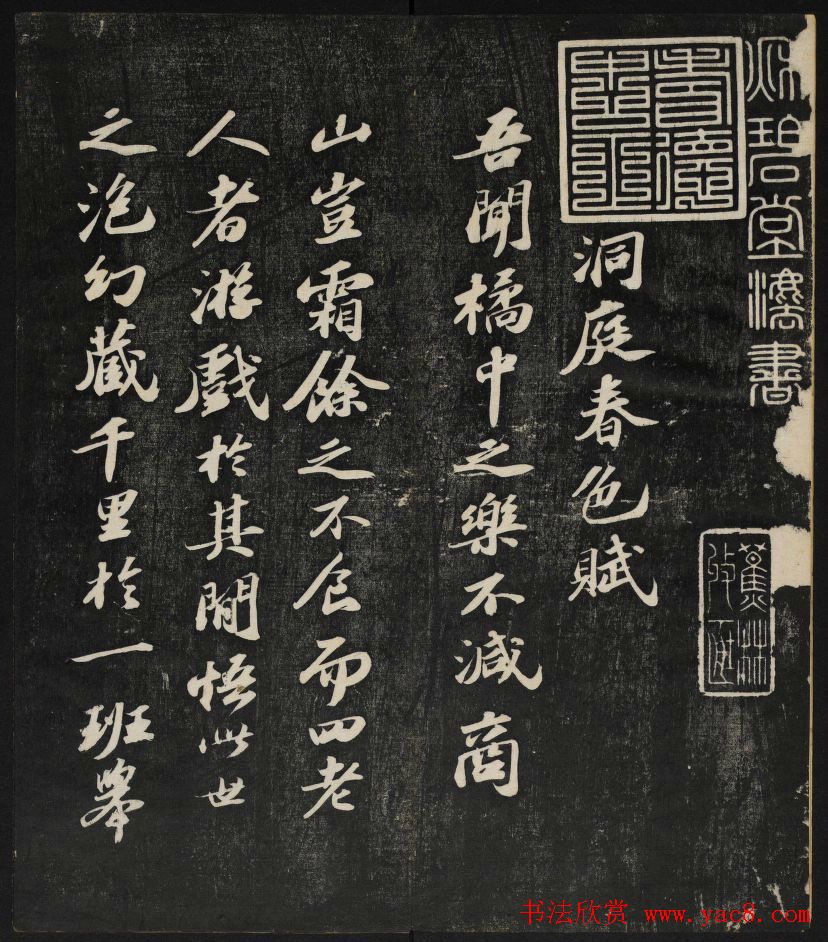 秋碧堂灋書
洞庭春色賦
吾聞橘中之樂不減商
山豈霜餘之不食而四老
人者游戲於其閒悟此世
之泡幻藏千里於一班舉
蕉林
书法欣赏 www.yac8.com